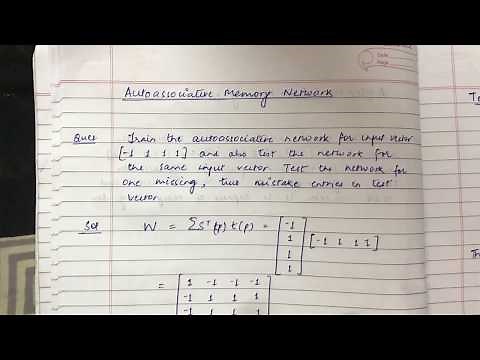 Autoassociative Memory Network
Ques Train the autoassociative network for input vector
[-1 1 1 1] and also test the network for
the same input vector. Test the network for
one missing, two mistake entries in test
vector.
Sol W = ΣSᵀ(p) t(p) = [-1 1 1 1] [-1 1 1 1]
= [1 -1 -1 -1
-1 1 1 1
-1 1 1 1